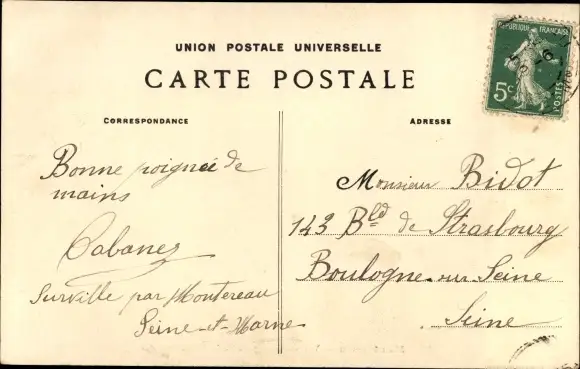 UNION POSTALE UNIVERSELLE
CARTE POSTALE
CORRESPONDANCE
Bonne poignée de
mains
Cabanes
Surville par Montereau
Seine-et-Marne
ADRESSE
Monsieur Bidot
143 Bld de Strasbourg
Boulogne-sur-Seine
Seine
REPUBLIQUE FRANÇAISE
5c
POSTES